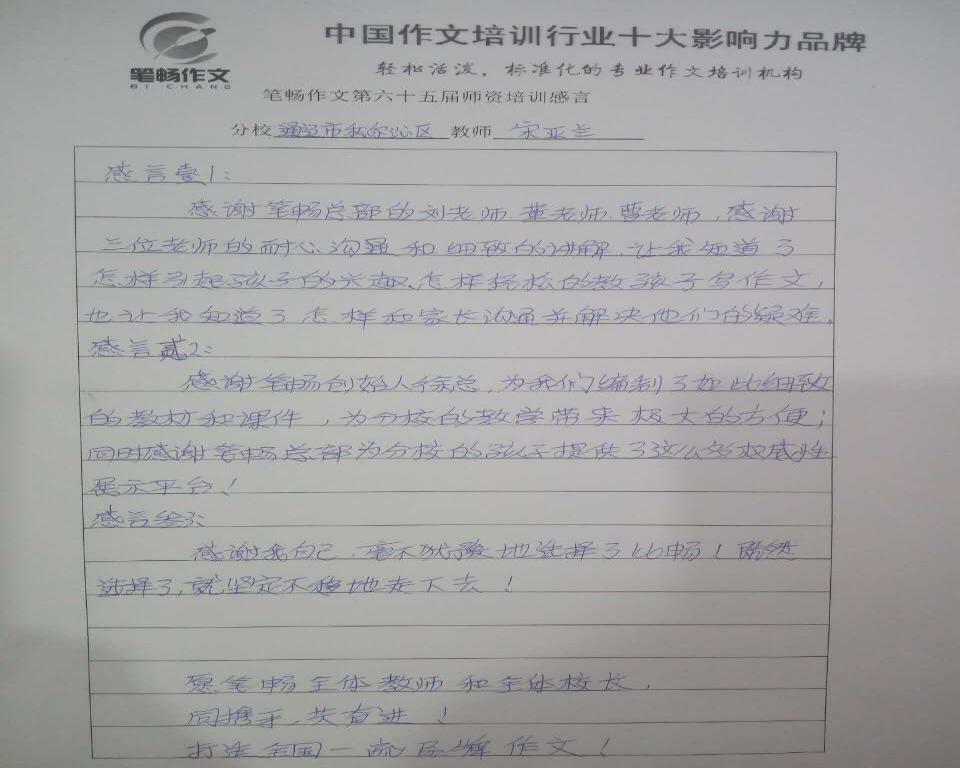 中国作文培训行业十大影响力品牌
笔畅作文
BI CHANG
轻松活泼，标准化的专业作文培训机构
笔畅作文第六十五届师资培训感言
分校 通辽市科尔沁区 教师 宋亚兰
感言壹1:
感谢笔畅总部的刘老师.董老师.曹老师，感谢
三位老师的耐心沟通和细致的讲解，让我知道了
怎样引起孩子的兴趣、怎样轻松的教孩子写作文，
也让我知道了怎样和家长沟通并解决他们的疑难。
感言贰2:
感谢笔畅创始人徐总，为我们编制了如此细致
的教材和课件，为分校的教学带来极大的方便；
同时感谢笔畅总部为分校的孩子提供了这么多权威性
展示平台！
感言叁3:
感谢我自己，毫不犹豫地选择了比畅！既然
选择了，就坚定不移地走下去！
愿笔畅全体教师和全体校长，
同携手，共奋进！
打造全国一流品牌作文！